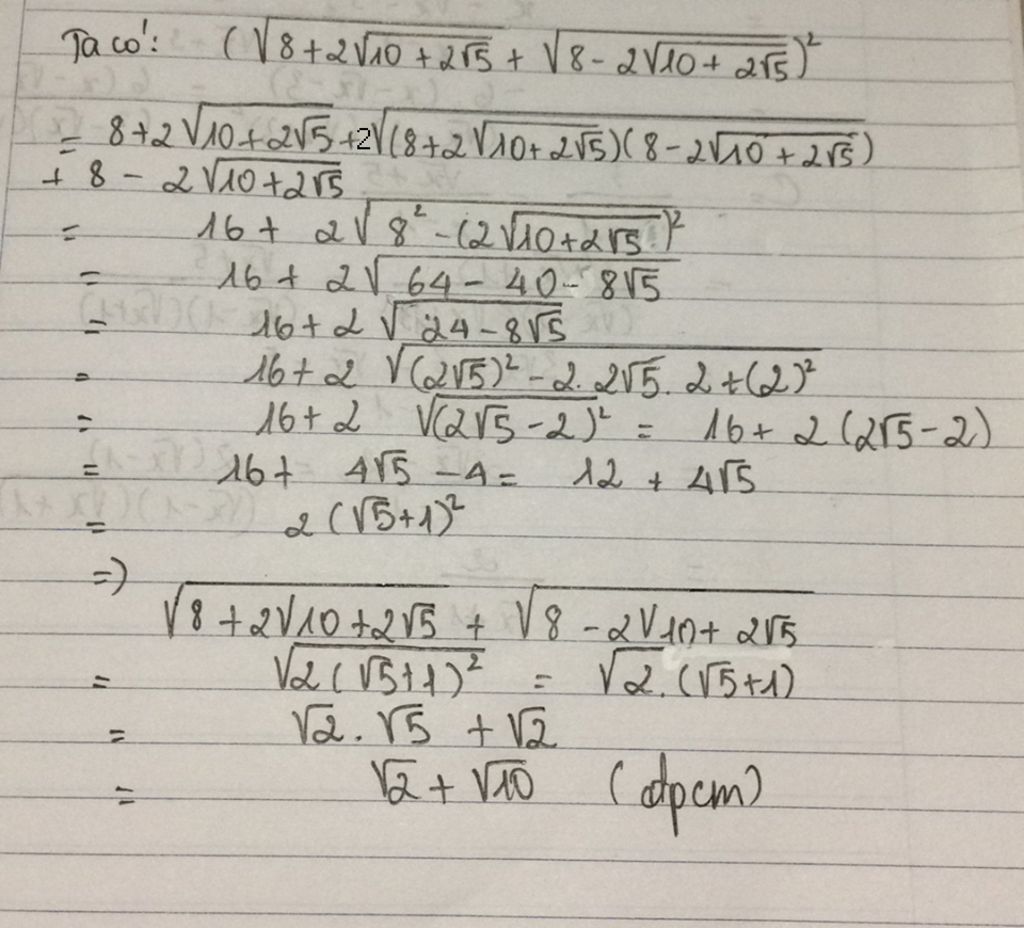 Ta có: (√(8+2√(10+2√5)) + √(8-2√(10+2√5)))²
= 8+2√(10+2√5) +2√((8+2√(10+2√5))(8-2√(10+2√5)))
+ 8 - 2√(10+2√5)
= 16 + 2√(8² -(2√(10+2√5))²)
= 16 + 2√(64 - 40 - 8√5)
= 16 + 2√(24-8√5)
= 16 + 2 √((2√5)² - 2.2√5.2+(2)²)
= 16 + 2 √((2√5-2)²) = 16 + 2(2√5-2)
= 16 + 4√5 - 4 = 12 + 4√5
= 2(√5+1)²
=>
√(8+2√(10+2√5)) + √(8-2√(10+2√5))
= √(2(√5+1)²) = √2.(√5+1)
= √2.√5 + √2
= √2 + √10 (đpcm)